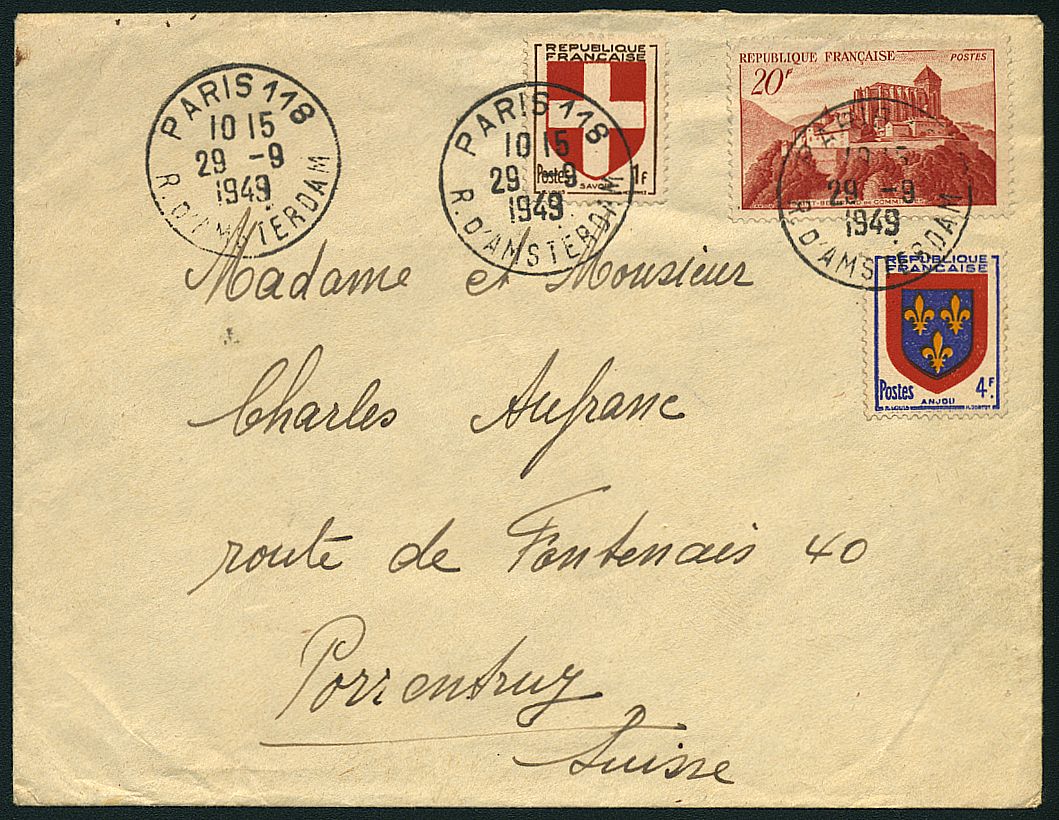 PARIS 118
10 15
29 -9
1949
R. D'AMSTERDAM
REPUBLIQUE
FRANÇAISE
Postes 1F
SAVOIE
PARIS 118
10 15
29 -9
1949
R. D'AMSTERDAM
REPUBLIQUE FRANÇAISE POSTES
20F
PARIS
10 15
29 -9
1949
R. D'AMSTERDAM
REPUBLIQUE
FRANÇAISE
Postes 4F.
ANJOU
Madame et Monsieur
Charles Aufranc
route de Fontenais 40
Porrentruy
Suisse